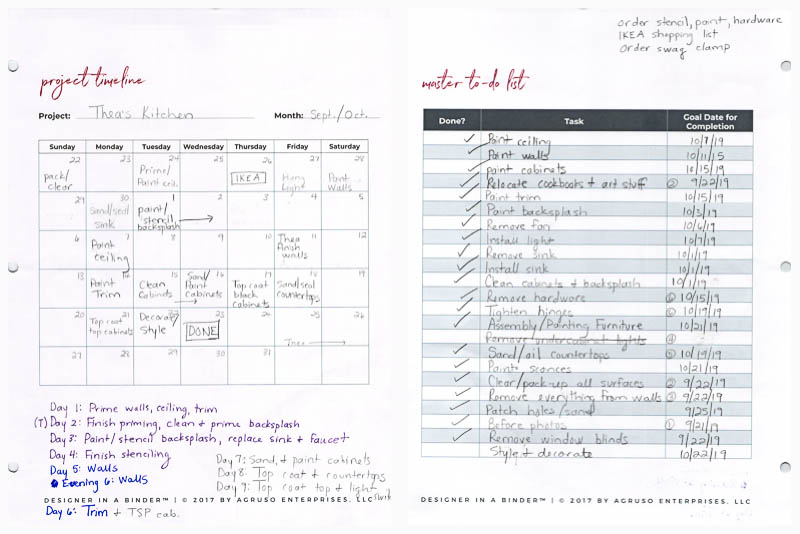 project timeline
Project: Thea's Kitchen Month: Sept./Oct.
Sunday Monday Tuesday Wednesday Thursday Friday Saturday
22 23 24 25 26 27 28
pack/ clear
Prime/ Paint ceil.
IKEA
Hang Light
Paint Walls
29 30 1 2 3 4 5
Sand/seal sink
paint/ stencil backsplash
6 7 8 9 10 11 12
Paint ceiling
Thea finish walls
13 14 15 16 17 18 19
Paint Trim
Clean Cabinets
Sand/ Paint cabinets
Top coat black cabinets
Sand/seal countertops
20 21 22 23 24 25 26
Top coat top cabinets
Decorate/ Style
DONE
27 28 29 30 31
Day 1: Prime walls, ceiling, trim
(T) Day 2: Finish priming, clean & prime backsplash
Day 3: Paint/stencil backsplash, replace sink & faucet
Day 4: Finish stenciling
Day 5: Walls
Evening 6: Walls
Day 7: Sand, & paint cabinets
Day 8: Top coat & countertops
Day 9: Top coat top & light
DESIGNER IN A BINDER™ | © 2017 BY AGRUSO ENTERPRISES, LLC
Day 6: Trim & TSP cab.
order stencil, paint, hardware
IKEA shopping list
Order swag clamp
master to-do list
Done? Task Goal Date for Completion
Paint ceiling 10/7/19
Paint walls 10/11/15
paint cabinets 10/15/19
Relocate cookbooks & art stuff ② 9/22/19
Paint trim 10/15/19
Paint backsplash 10/3/19
Remove fan 10/6/19
Install light 10/7/19
Remove sink 10/1/19
Install sink 10/1/19
Clean cabinets & backsplash 10/1/19
Remove hardware 10/15/19
Tighten hinges 10/19/19
Assembly/Painting Furniture 10/21/19
Remove undercabinet lights ④
Sand/oil countertops 10/19/19
Paint sconces 10/21/19
Clear/pack-up all surfaces ② 9/22/19
Remove everything from walls ③ 9/22/19
Patch holes/sand 9/25/19
Before photos ① 9/21/19
Remove window blinds 9/22/19
Style & decorate 10/22/19
DESIGNER IN A BINDER™ | © 2017 BY AGRUSO ENTERPRISES, LLC